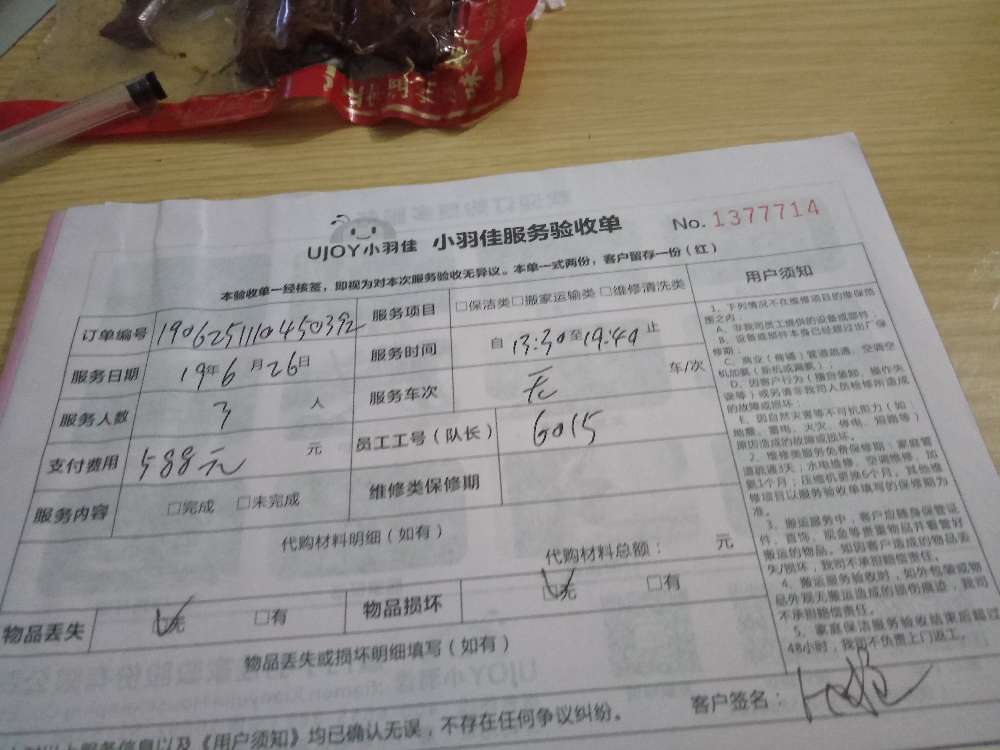 UJOY小羽佳 小羽佳服务验收单 No. 1377714
本验收单一经核签，即视为对本次服务验收无异议。本单一式两份，客户留存一份（红）
订单编号
服务项目 □保洁类□搬家运输类□维修清洗类
服务日期 19年6月26日
服务时间 自 13:30至19:40止
服务人数 3 人
服务车次 无 车/次
支付费用 588元 元
员工工号（队长） 6015
服务内容 □完成 □未完成
维修类保修期
代购材料明细（如有）
代购材料总额： 元
物品丢失 □无 □有
物品损坏 □无 □有
物品丢失或损坏明细填写（如有）
用户须知
1、下列情况不在维修项目的维保范
围之内：
A、非我司员工提供的设备或部件；
B、设备或部件本身已经超过出厂保
修期；
C、商业（商铺）管道疏通、空调空
机加氨（新机或漏氨）；
D、因客户行为（擅自装卸、操作失
误等）或另请非我司人员检修所造成
的故障或损坏；
E、因自然灾害等不可抗拒力（如：
地震、雷电、火灾、停电、短路等）
原因造成的故障或损坏。
2、维修类服务免费保修期：家庭管
道疏通3天；水电维修、空调维修、加
氨1个月；压缩机更换6个月，其他维
修项目以服务验收单填写的保修期为
准。
3、搬运服务中，客户应随身保管证
件、首饰、现金等贵重物品并看管好
搬运的物品。如因客户造成的物品丢
失/损坏，我司不承担赔偿责任。
4、搬运服务验收时，如外包装或物
品外观无搬运造成的损伤痕迹，我司
不承担赔偿责任。
5、家庭保洁服务验收结束后超过
48小时，我司不负责上门返工。
以上服务信息以及《用户须知》均已确认无误，不存在任何争议纠纷。
客户签名：